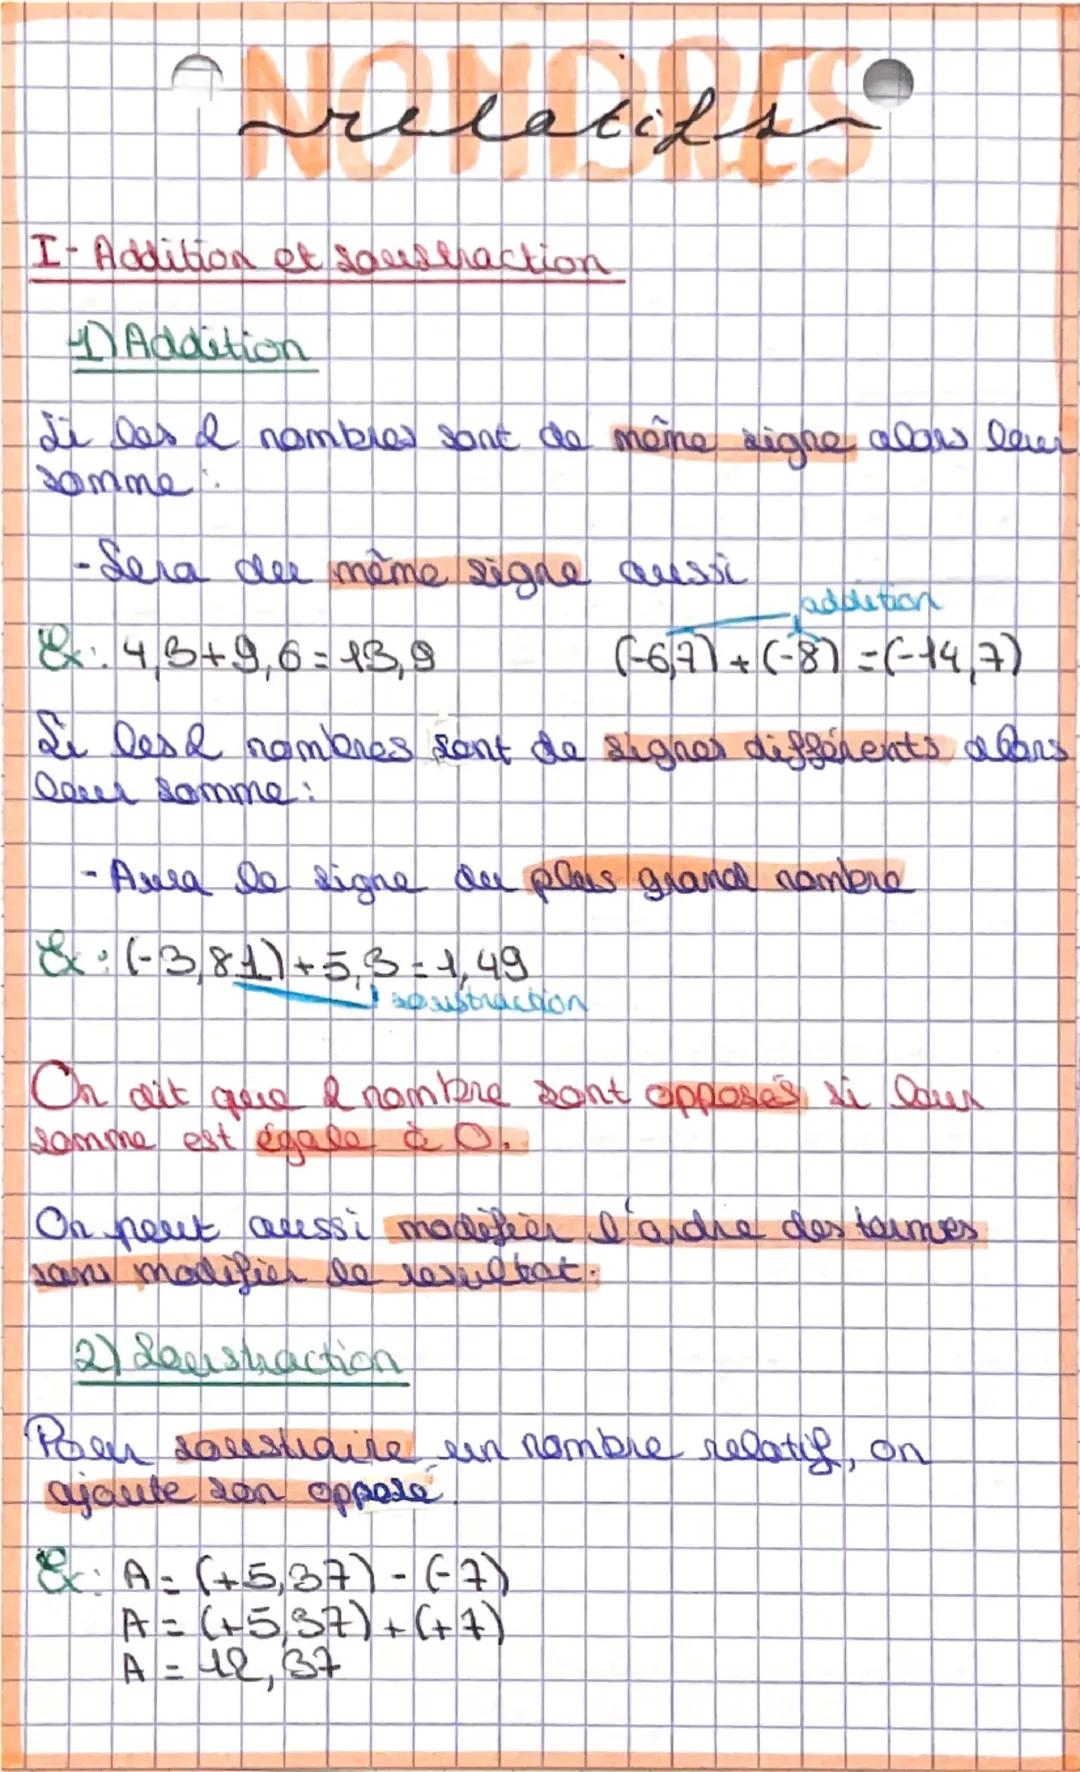 NOMBRES
relatifs
I- Addition et soustraction
1) Addition
Si les 2 nombres sont de même signe alors leur
somme :
- Sera du même signe aussi
addition
Ex : 4,3+9,6=13,9 (-6,7)+(-8)=(-14,7)
Si les 2 nombres sont de signes différents alors
leur somme :
- Aura le signe du plus grand nombre
Ex : (-3,81)+5,3=1,49
soustraction
On dit que 2 nombre sont opposés si leur
somme est égale à 0.
On peut aussi modifier l'ordre des termes
sans modifier le resultat.
2) Soustraction
Pour soustraire un nombre relatif, on
ajoute son opposé.
Ex : A = (+5,37) - (-7)
A = (+5,37) + (+7)
A = 12,37